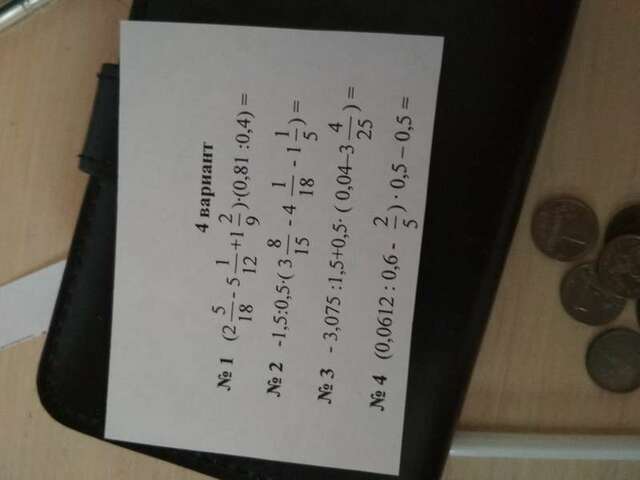 4 вариант
№ 1 (2 5/18 - 5 1/12 + 1 2/9)·(0,81 :0,4) =
№ 2 -1,5:0,5·( 3 8/15 - 4 1/18 - 1 1/5 ) =
№ 3 - 3,075 :1,5+0,5· ( 0,04–3 4/25 ) =
№ 4 (0,0612 : 0,6 - 2/5 ) · 0,5 – 0,5 =